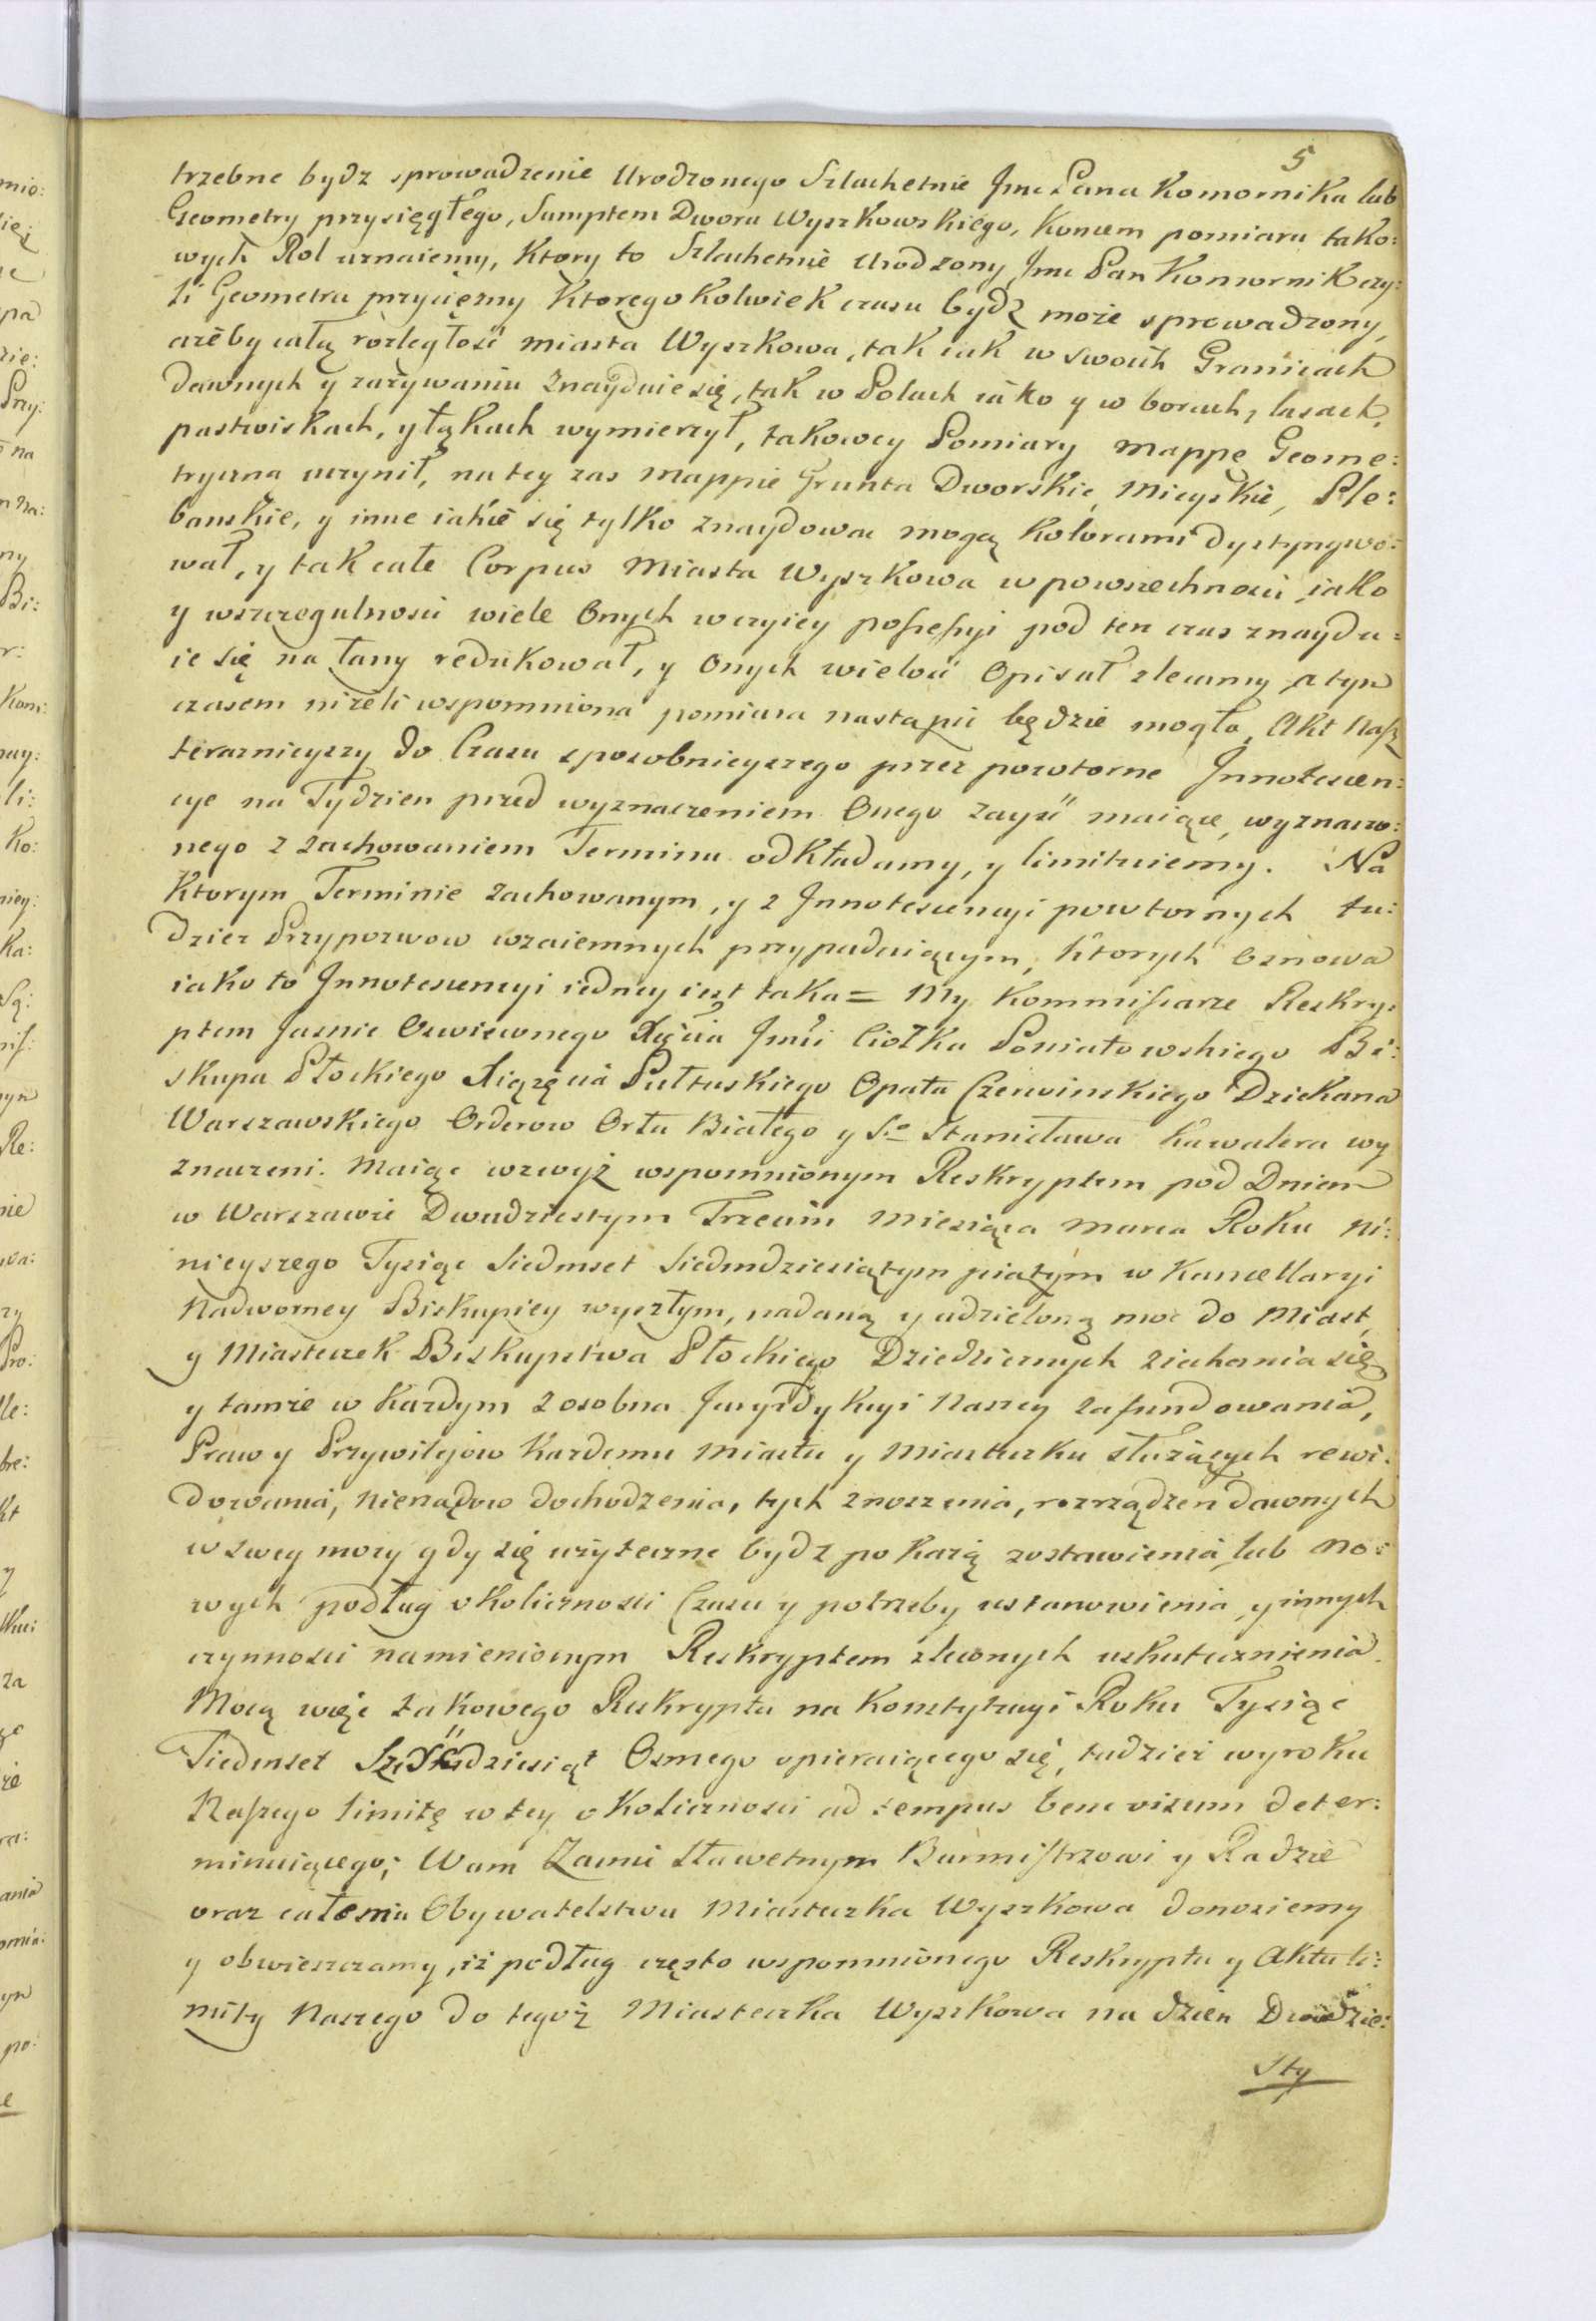 5
trzebne bydz sprowadzenie Urodzonego Szlachetnie Jmc Pana Komornika lub
Geometry przysięgłego, Sumptem Dworu Wyszkowskiego, koncem pomiaru tako:
wych Rol uznaiemy, Ktory to Szlachetnie Urodzony Jmc Pan Komornik czy:
li Geometra przysięzny Ktoregokolwiek czasu bydz może sprowadzony,
ażeby całą rozległość miasta Wyszkowa, tak iak w swoich Granicach
Dawnych y zażywaniu znayduie się, tak w Polach iako y w borach, lasach,
pastwiskach, y łąkach wymierzył, takowey Pomiary mappę Geome:
tryczna uczynił, na tey zas mappie Grunta Dworskie, Mieyskie, Ple:
banskie, y inne iakie się tylko znaydowac mogą kolorami dystyngwo:
wał, y tak całe Corpus Miasta Wyszkowa w powszechnosci iako
y wszczegulnosci wiele Onych w czyiey possessyi pod ten czas znaydu:
ie się na łany redukował, y Onych wielość Opisał zlecamy, a tym
czasem niżeli wspomniona pomiara nastąpic będzie mogła, Akt Nasz
teraznieyszy do Czasu sposobnieyszego przez powtorne Innotescen:
cye na Tydzien przed wyznaczeniem Onego zayść maiące, wyznaczo:
nego z zachowaniem Terminu odkładamy, y limituiemy. Na
Ktorym Terminie zachowanym, y z Innotescencyi powtornych tu:
dziez Przypozwow wzaiemnych przypadaiącym, ktorych Osnowa
iako to Innotescencyi iedney iest taka = My Kommissarze Reskry:
ptem Jasnie Oswieconego Xcia Jmci Ciołka Poniatowskiego Bi:
skupa Płockiego Xiążęcia Pułtuskiego Opata Czerwinskiego Dziekana
Warszawskiego Orderow Orła Białego y S:o Stanisława Kawalera wy
znaczeni. Maiąc wzwyż wspomnionym Reskryptem pod Dniem
w Warszawie Dwudziestym Trzecim Miesiąca Marca Roku ni:
nieyszego Tysiąc Siedmset Siedmdziesiątym piątym w Kancellaryi
Nadworney Biskupiey wyszłym, nadaną y udzieloną moc do Miast,
y Miasteczek Biskupstwa Płockiego Dziedzicznych ziechania się
y tamże w każdym z osobna Juryzdykcyi Naszey zafundowania,
Praw y Przywilejow Każdemu Miastu y Miasteczku służących rewi:
dowania, Nierządow dochodzenia, tych znoszenia, rozrządzen dawnych
w swey mocy gdy się użyteczne bydz pokażą zostawienia, lub no:
wych podług okolicznosci Czasu y potrzeby ustanowienia, y innych
czynnosci namienionym Reskryptem zleconych uskutecznienia.
Mocą więc takowego Reskryptu na Konstytucyi Roku Tysiąc
Siedmset Sześćdziesiąt Osmego opieraiącego się, tudziez wyroku
Naszego limitę w tey okolicznosci ad tempus bene visum deter:
minuiącego; Wam Zacnie Sławetnym Burmistrzowi y Radzie
oraz całemu Obywatelstwu Miasteczka Wyszkowa donosiemy
y obwieszczamy, iż podług często wspomnionego Reskryptu y Aktu li:
mity Naszego do tegoż Miasteczka Wyszkowa na dzien Dwudzie:
sty